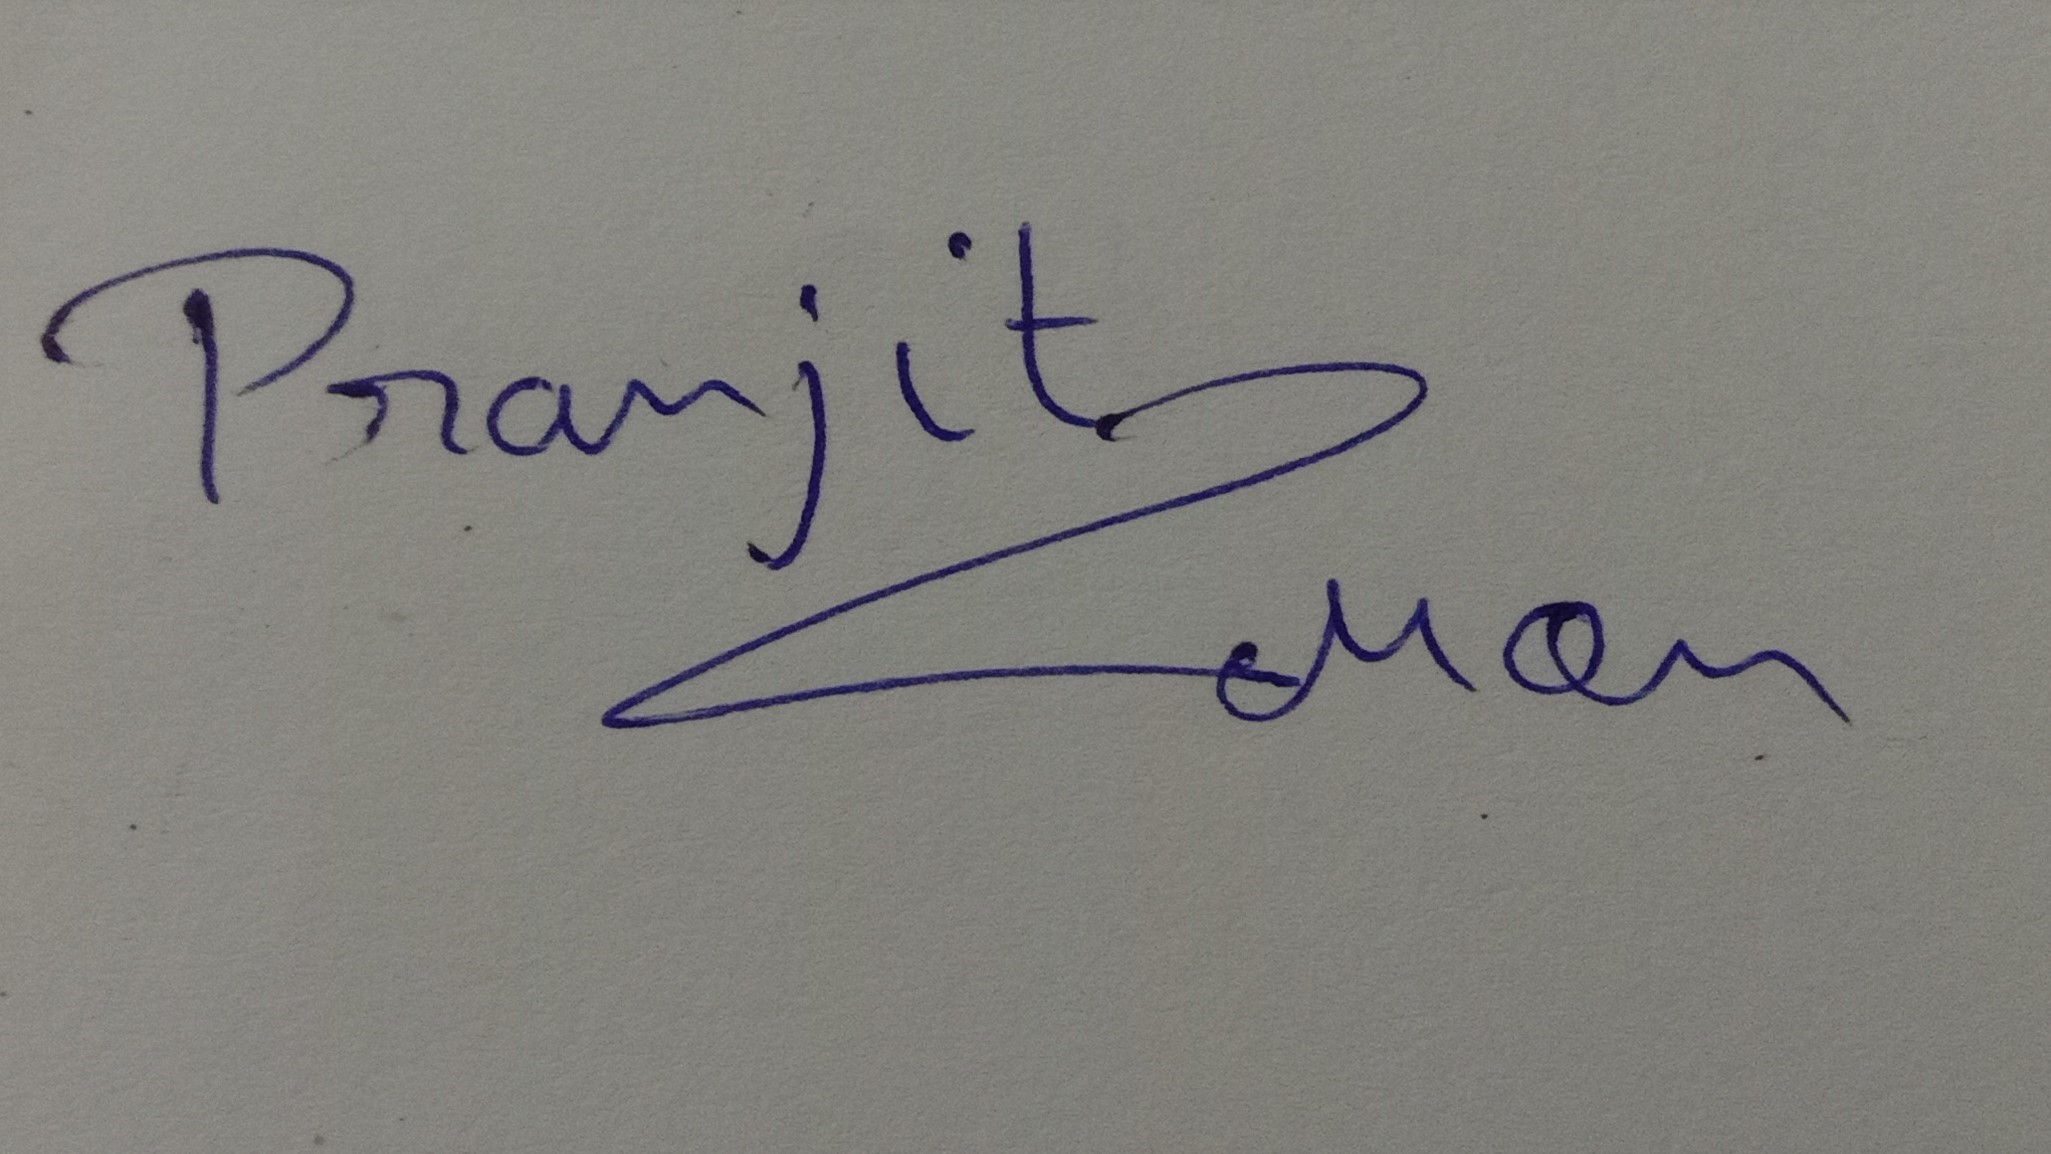 Pranjit
Man